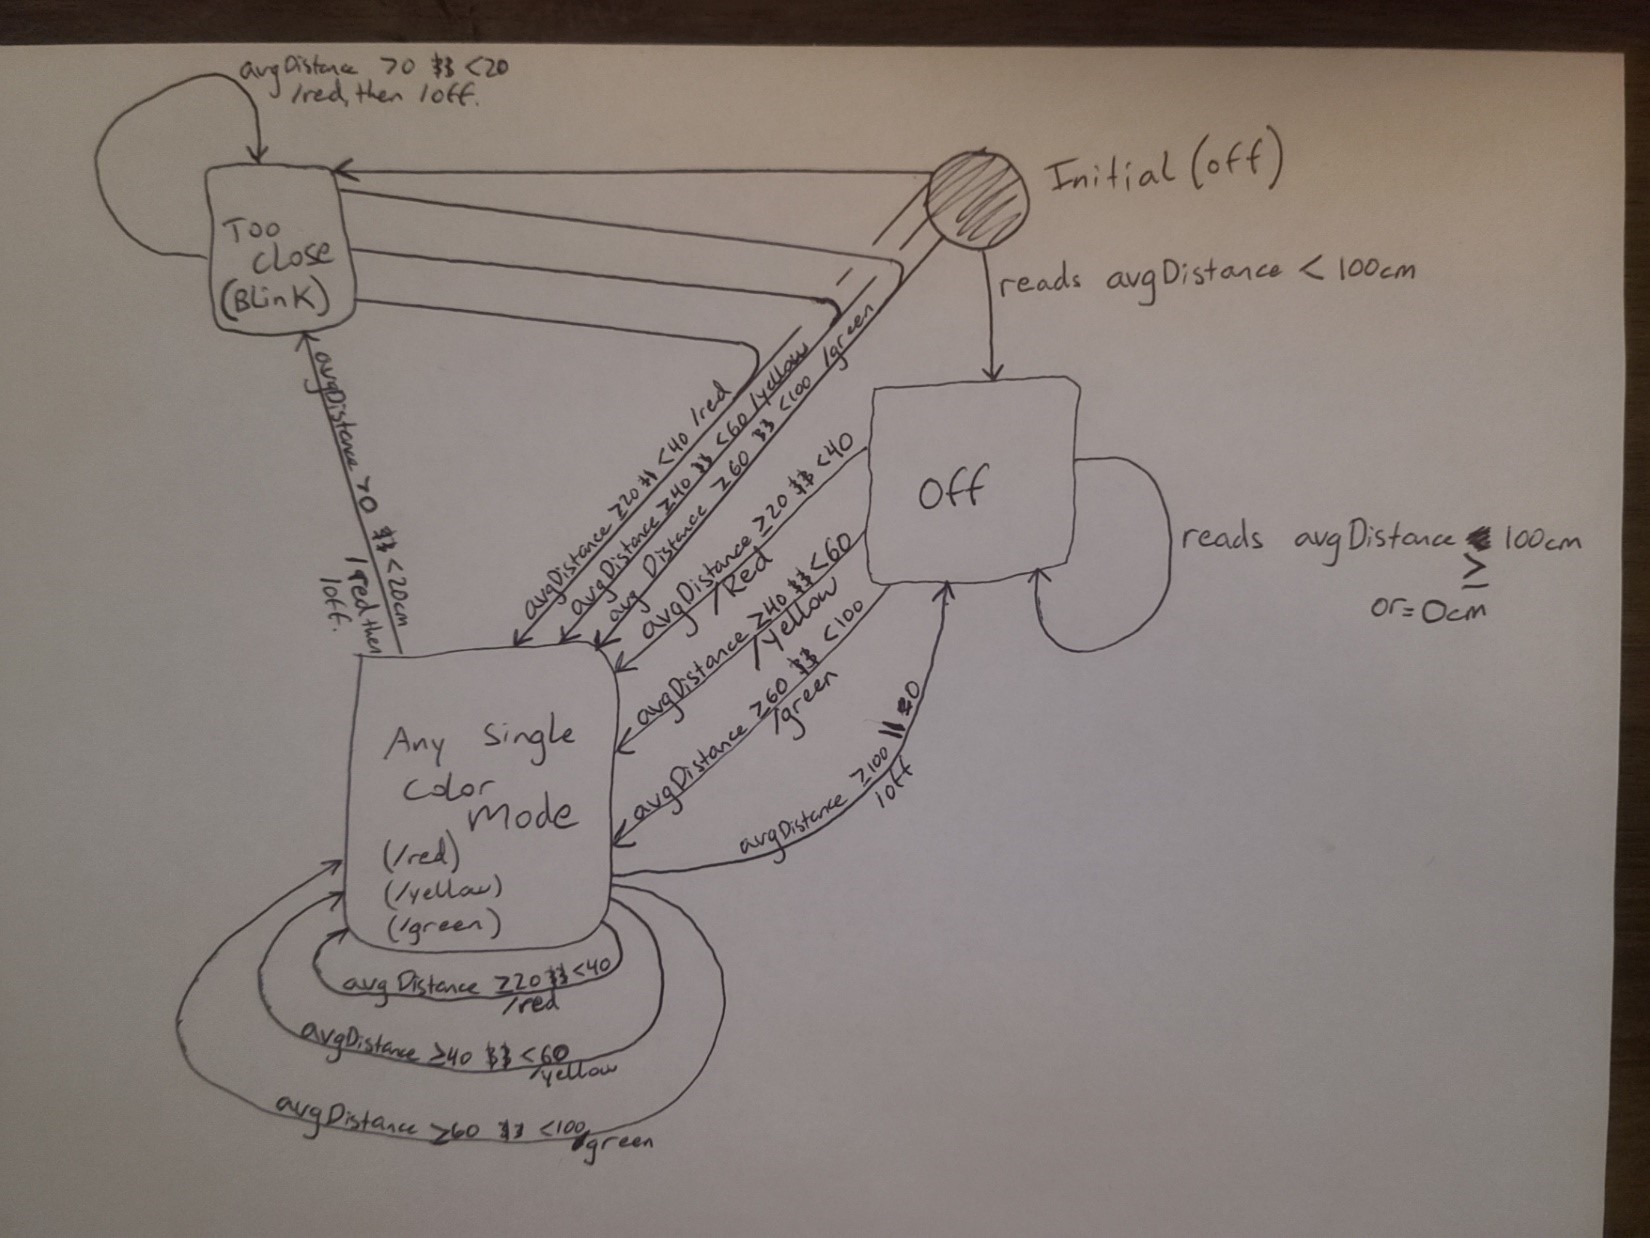 avgDistance >0 && <20
/red, then /off.
Initial (off)
Too
Close
(Blink)
reads avgDistance < 100cm
avgDistance ≥20 && <40 /red
avgDistance ≥40 && <60 /yellow
avg Distance ≥60 && <100 /green
avgDistance >0 && <20cm
/red then
/off.
Off
reads avgDistance 100cm
≥
or = 0cm
avgDistance ≥20 && <40
/Red
avgDistance ≥40 && <60
/yellow
avgDistance ≥60 && <100
/green
avgDistance ≥100 || 0
/off
Any Single
Color
Mode
(/red)
(/yellow)
(/green)
avg Distance ≥20 && <40
/red
avgDistance ≥40 && <60
/yellow
avgDistance ≥60 && <100
/green